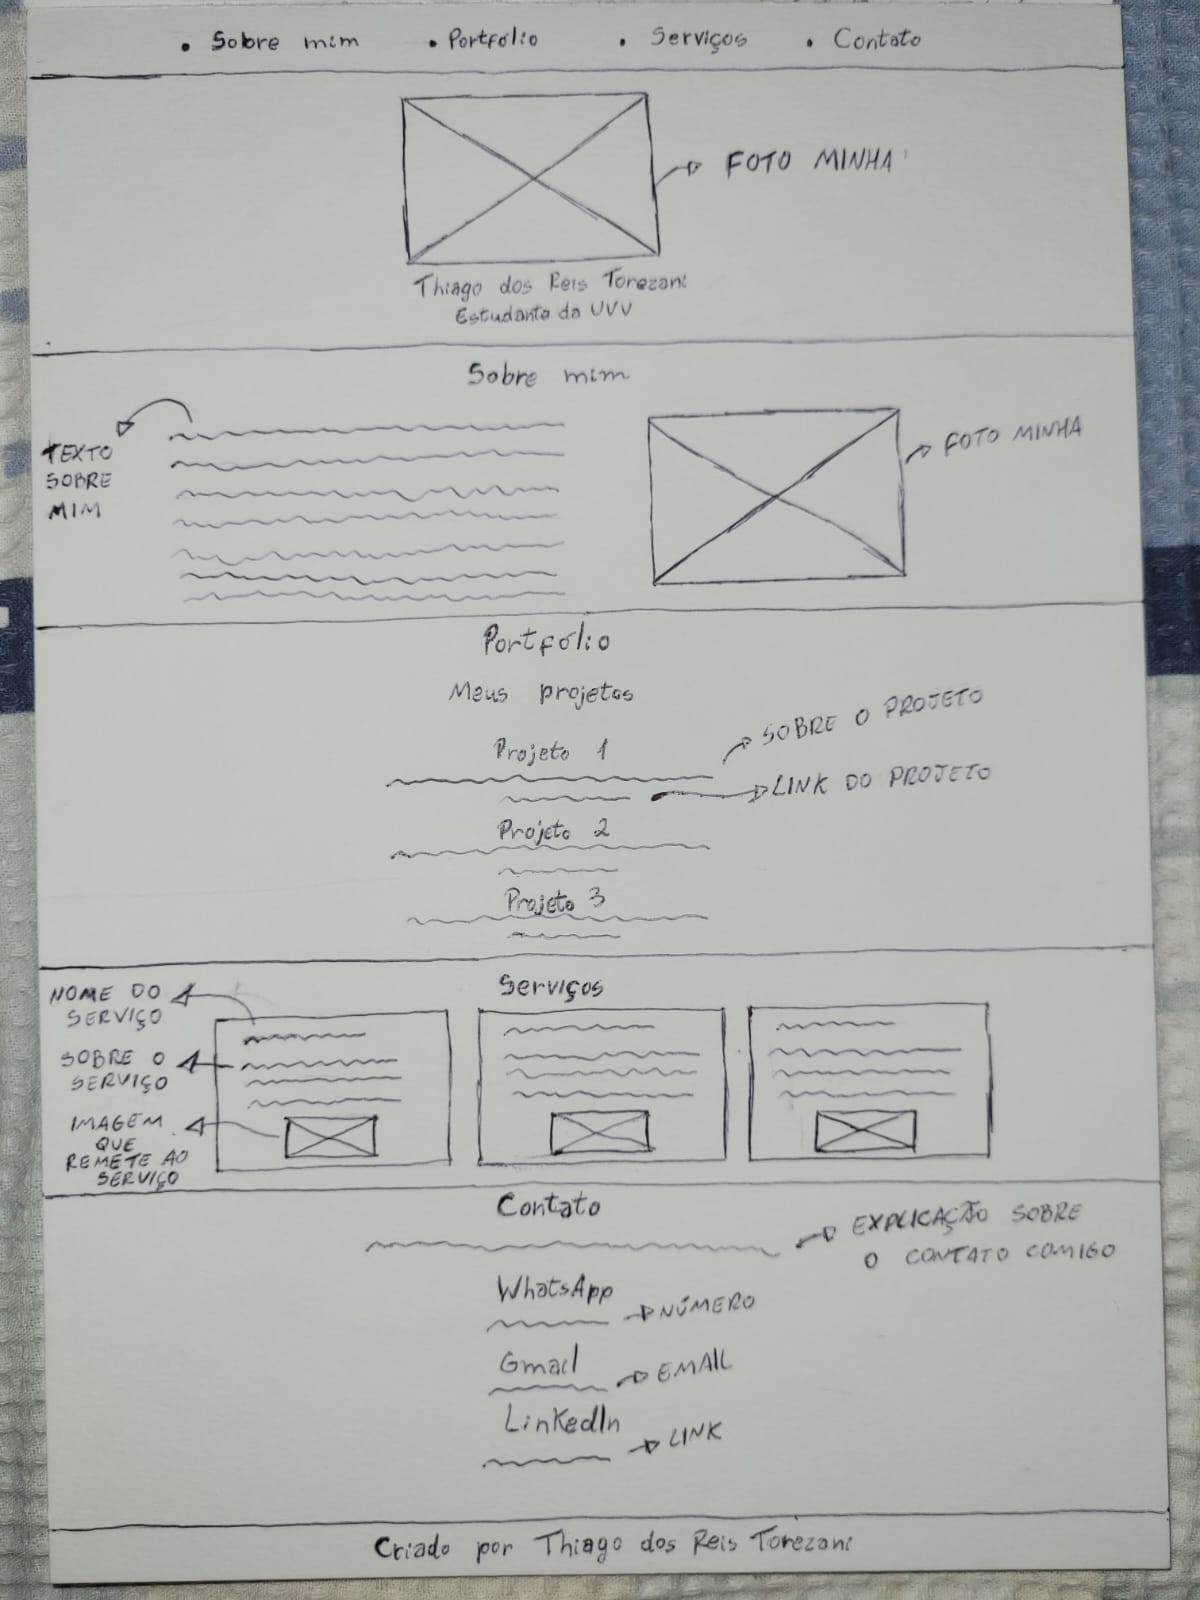 • Sobre mim • Portfólio • Serviços • Contato
FOTO MINHA
Thiago dos Reis Torezani
Estudante da UVV
Sobre mim
TEXTO
SOBRE
MIM
FOTO MINHA
Portfólio
Meus projetos
Projeto 1
SOBRE O PROJETO
LINK DO PROJETO
Projeto 2
Projeto 3
Serviços
NOME DO
SERVIÇO
SOBRE O
SERVIÇO
IMAGEM
QUE
REMETE AO
SERVIÇO
Contato
EXPLICAÇÃO SOBRE
O CONTATO COMIGO
WhatsApp
NÚMERO
Gmail
EMAIL
LinkedIn
LINK
Criado por Thiago dos Reis Torezani